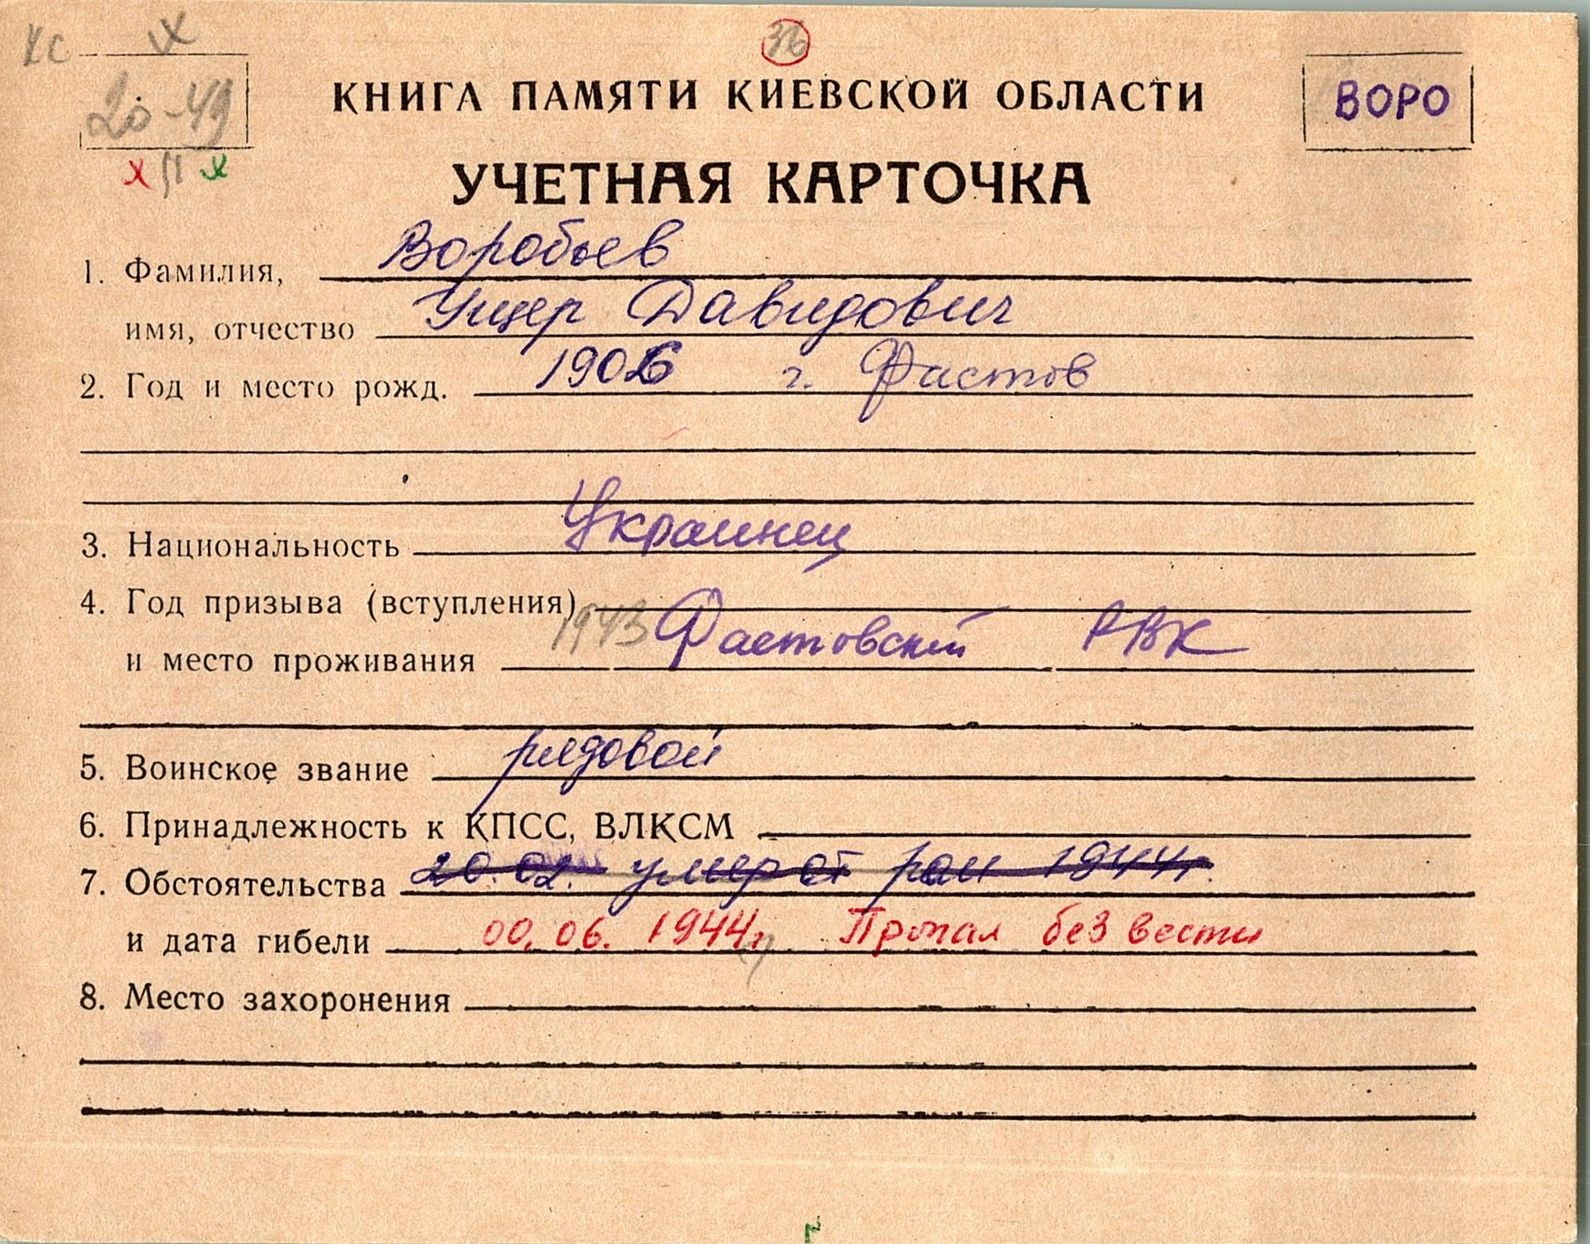 КС х 36
20-49 КНИГА ПАМЯТИ КИЕВСКОЙ ОБЛАСТИ ВОРО
х П х
УЧЕТНАЯ КАРТОЧКА
1. Фамилия, Воробьев
имя, отчество Ущер Давидович
2. Год и место рожд. 1906 г. Фастов
3. Национальность Украинец
4. Год призыва (вступления)
и место проживания 1943 Фастовский РВК
5. Воинское звание рядовой
6. Принадлежность к КПСС, ВЛКСМ
7. Обстоятельства 20.02. умер от ран 1944г.
и дата гибели 00.06. 1944г. Пропал без вести
8. Место захоронения
г